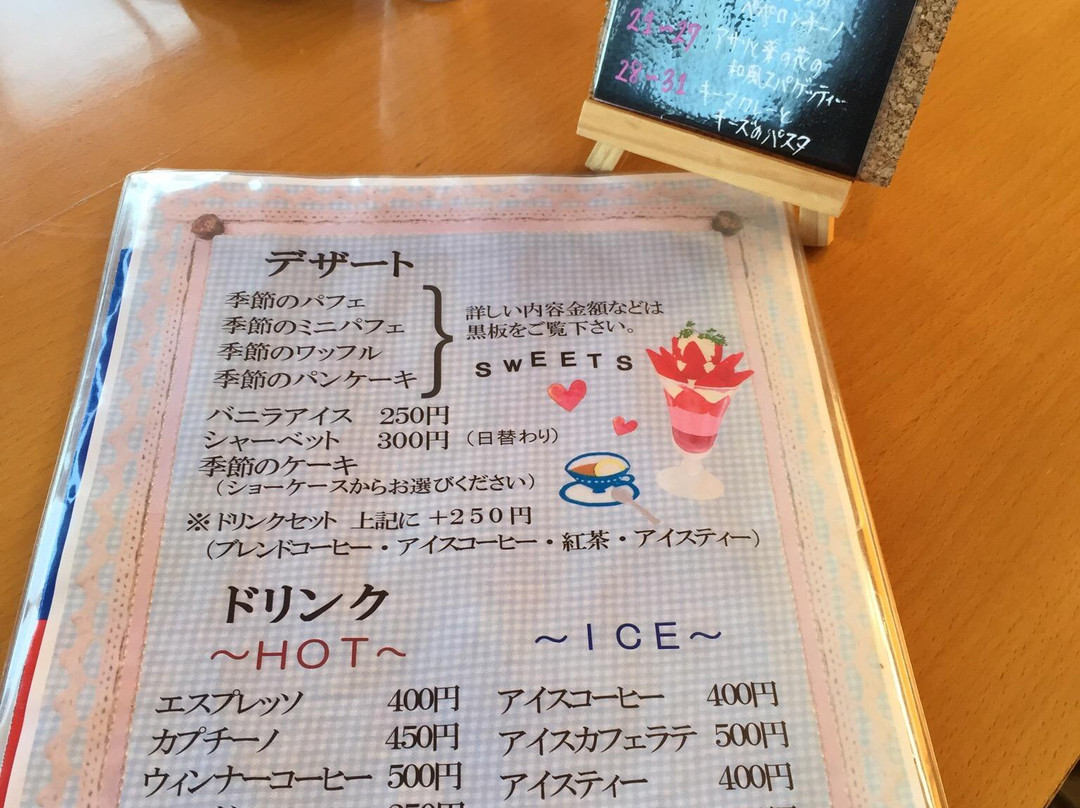 ペペロンチーノ
21-27 アサリと菜の花の
和風スパゲッティー
28-31 キーマカレーと
チーズのパスタ
デザート
季節のパフェ
季節のミニパフェ
季節のワッフル
季節のパンケーキ
詳しい内容金額などは
黒板をご覧下さい。
SWEETS
バニラアイス 250円
シャーベット 300円 (日替わり)
季節のケーキ
(ショーケースからお選びください)
※ドリンクセット 上記に +250円
(ブレンドコーヒー・アイスコーヒー・紅茶・アイスティー)
ドリンク
~HOT~
エスプレッソ 400円
カプチーノ 450円
ウィンナーコーヒー 500円
~ICE~
アイスコーヒー 400円
アイスカフェラテ 500円
アイスティー 400円